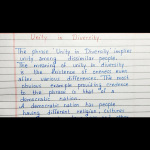 Unity in Diversity
The phrase Unity in Diversity implies
unity among dissimilar people.
The meaning of unity in diversity
is the existence of oneness even
after various differences. The most
obvious example providing credence
to the phrase is that of a
democratic nation.
A democratic nation has people
having different religion, cultures,